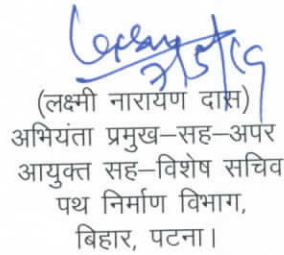 7/5/19
(लक्ष्मी नारायण दास)
अभियंता प्रमुख–सह–अपर
आयुक्त सह–विशेष सचिव
पथ निर्माण विभाग,
बिहार, पटना।